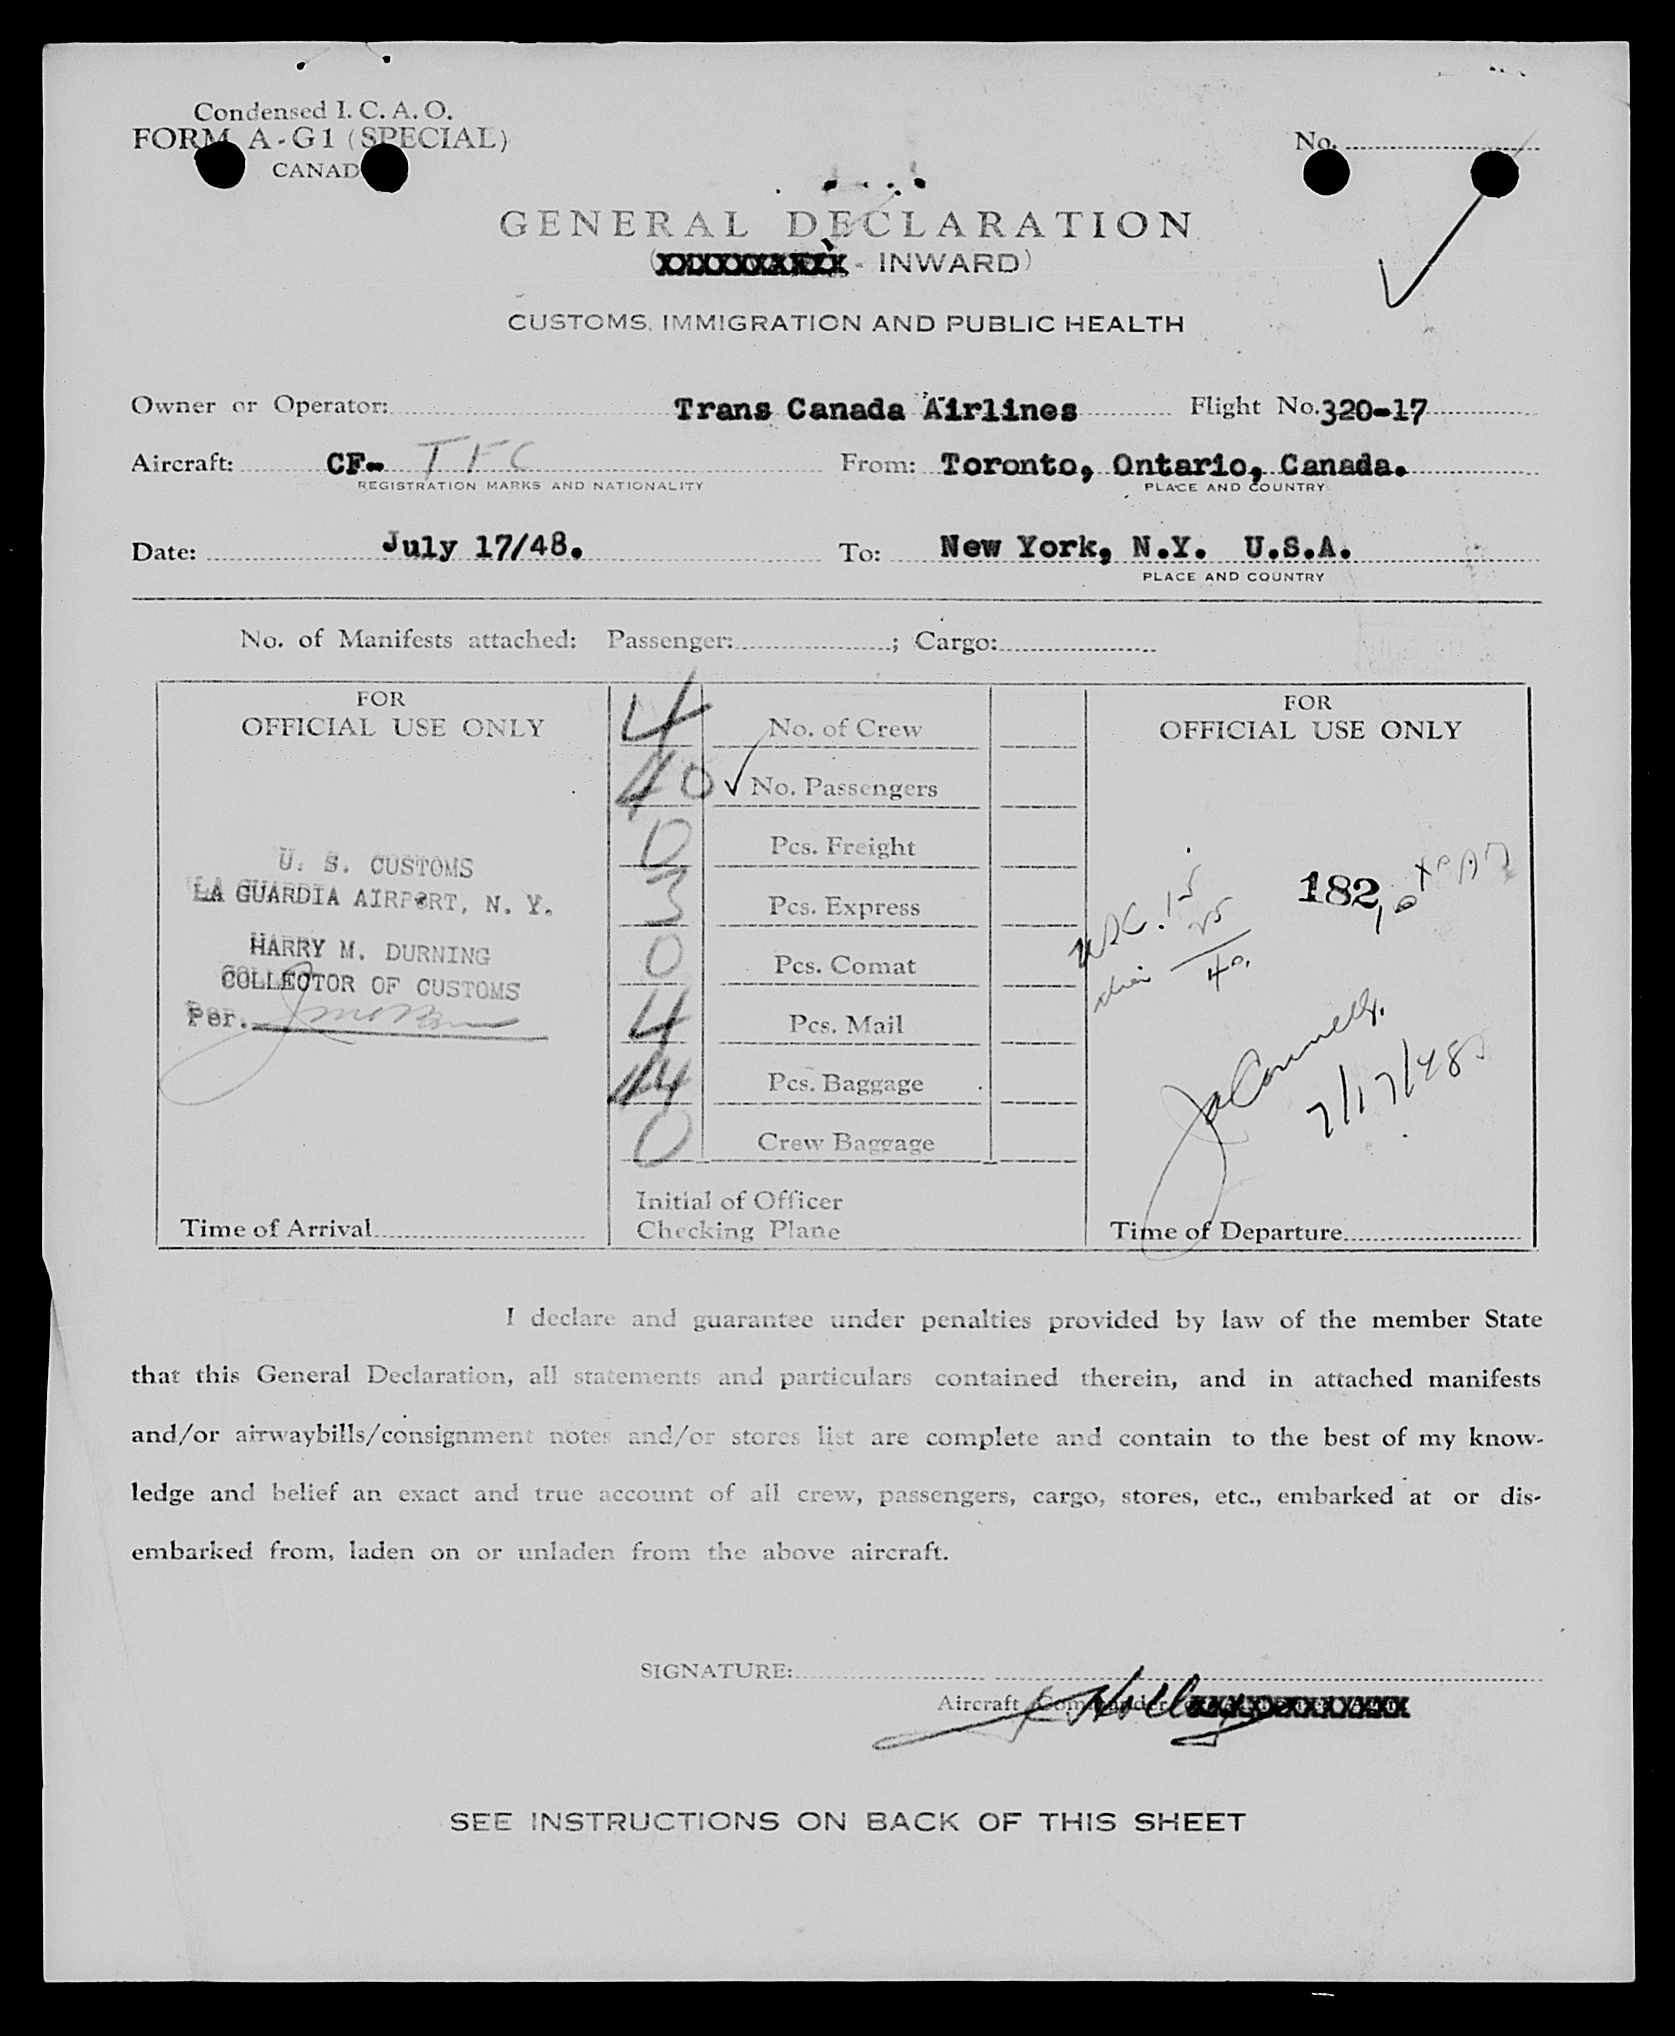 Condensed I. C. A. O.
FORM A-G1 (SPECIAL)
CANAD
No.
GENERAL DECLARATION
- INWARD)
CUSTOMS, IMMIGRATION AND PUBLIC HEALTH
Owner or Operator: Trans Canada Airlines Flight No. 320-17
Aircraft: CF- TFC From: Toronto, Ontario, Canada.
REGISTRATION MARKS AND NATIONALITY PLACE AND COUNTRY
Date: July 17/48. To: New York, N.Y. U.S.A.
PLACE AND COUNTRY
No. of Manifests attached: Passenger: ; Cargo:
FOR
OFFICIAL USE ONLY
U. S. CUSTOMS
LA GUARDIA AIRPORT, N. Y.
HARRY M. DURNING
COLLECTOR OF CUSTOMS
Per.
Time of Arrival
4 No. of Crew
40 No. Passengers
0 Pcs. Freight
3 Pcs. Express
0 Pcs. Comat
4 Pcs. Mail
14 Pcs. Baggage
0 Crew Baggage
Initial of Officer
Checking Plane
FOR
OFFICIAL USE ONLY
182
USC. 15
25
40
7/17/48
Time of Departure
I declare and guarantee under penalties provided by law of the member State
that this General Declaration, all statements and particulars contained therein, and in attached manifests
and/or airwaybills/consignment notes and/or stores list are complete and contain to the best of my know-
ledge and belief an exact and true account of all crew, passengers, cargo, stores, etc., embarked at or dis-
embarked from, laden on or unladen from the above aircraft.
SIGNATURE:
Aircraft Commander
SEE INSTRUCTIONS ON BACK OF THIS SHEET